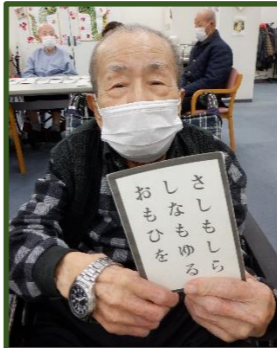 さしもしら
しなもゆる
おもひを